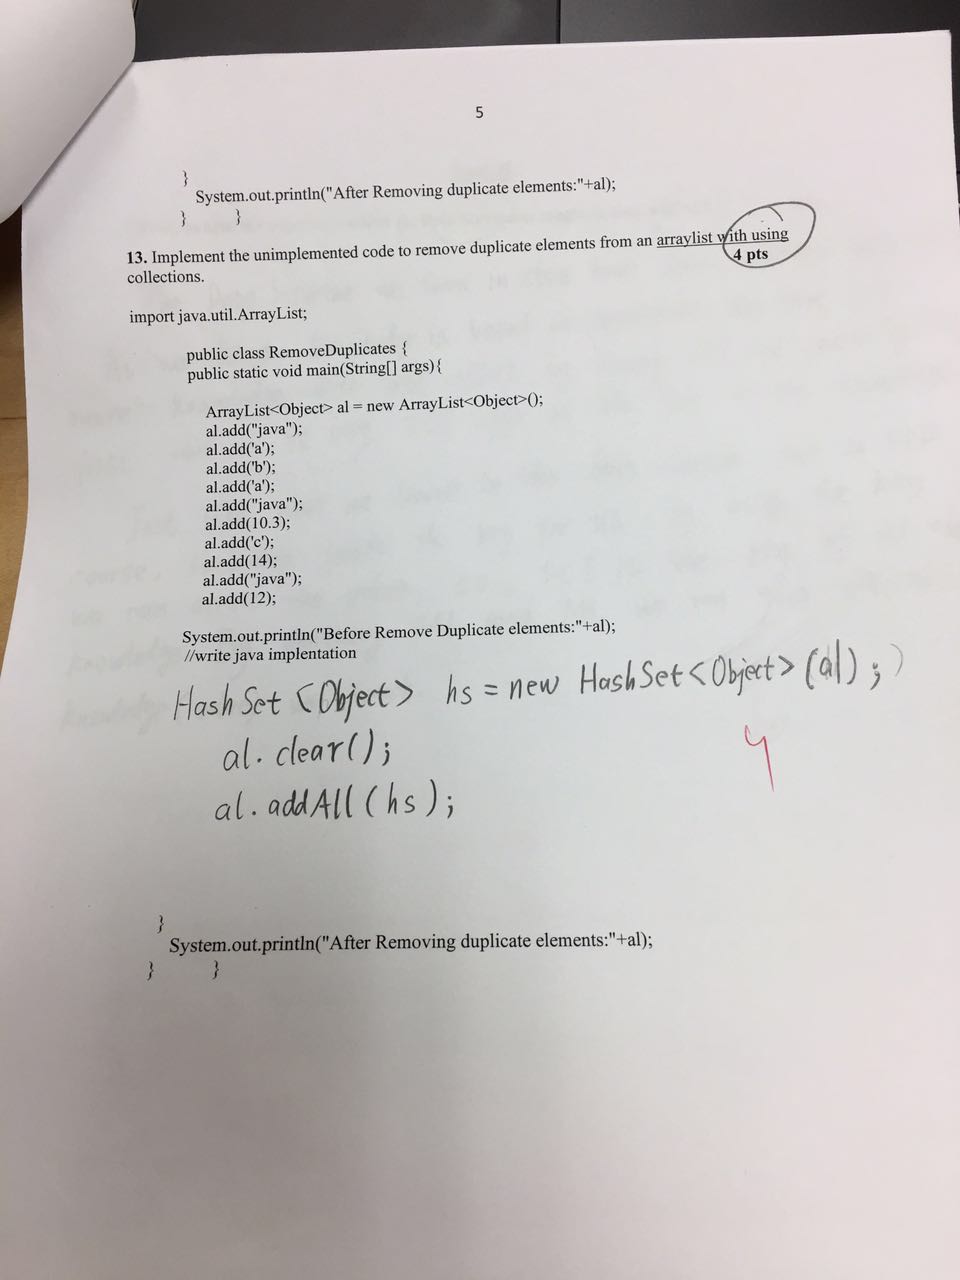 5
}
System.out.println("After Removing duplicate elements:"+al);
} }
13. Implement the unimplemented code to remove duplicate elements from an arraylist with using
collections. 4 pts
import java.util.ArrayList;
public class RemoveDuplicates {
public static void main(String[] args){
ArrayList<Object> al = new ArrayList<Object>();
al.add("java");
al.add('a');
al.add('b');
al.add('a');
al.add("java");
al.add(10.3);
al.add('c');
al.add(14);
al.add("java");
al.add(12);
System.out.println("Before Remove Duplicate elements:"+al);
//write java implentation
HashSet <Object> hs = new HashSet<Object>(al);)
al.clear();
4
al.addAll(hs);
}
System.out.println("After Removing duplicate elements:"+al);
} }